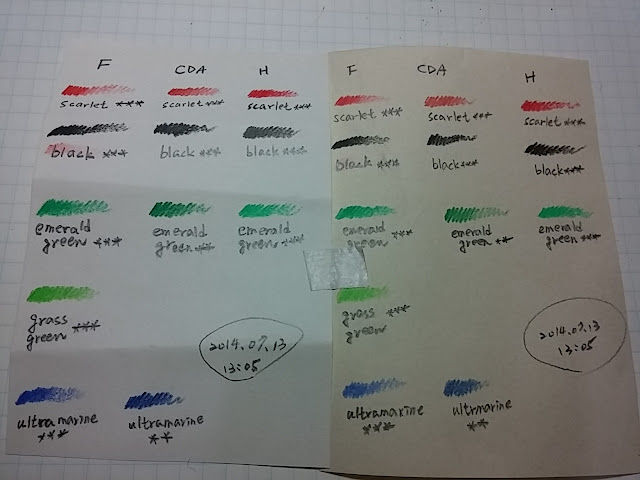 F CDA H
scarlet *** scarlet *** scarlet ***
black *** black *** black ***
emerald emerald emerald
green *** green *** green ***
grass
green ***
2014.07.13
13:05
ultramarine ultramarine
*** **
F CDA H
scarlet *** scarlet *** scarlet ***
black *** black *** black ***
emerald emerald emerald
green *** green ** green ***
grass ***
green
2014.07.13
13:05
ultramarine ultrmarine
*** **